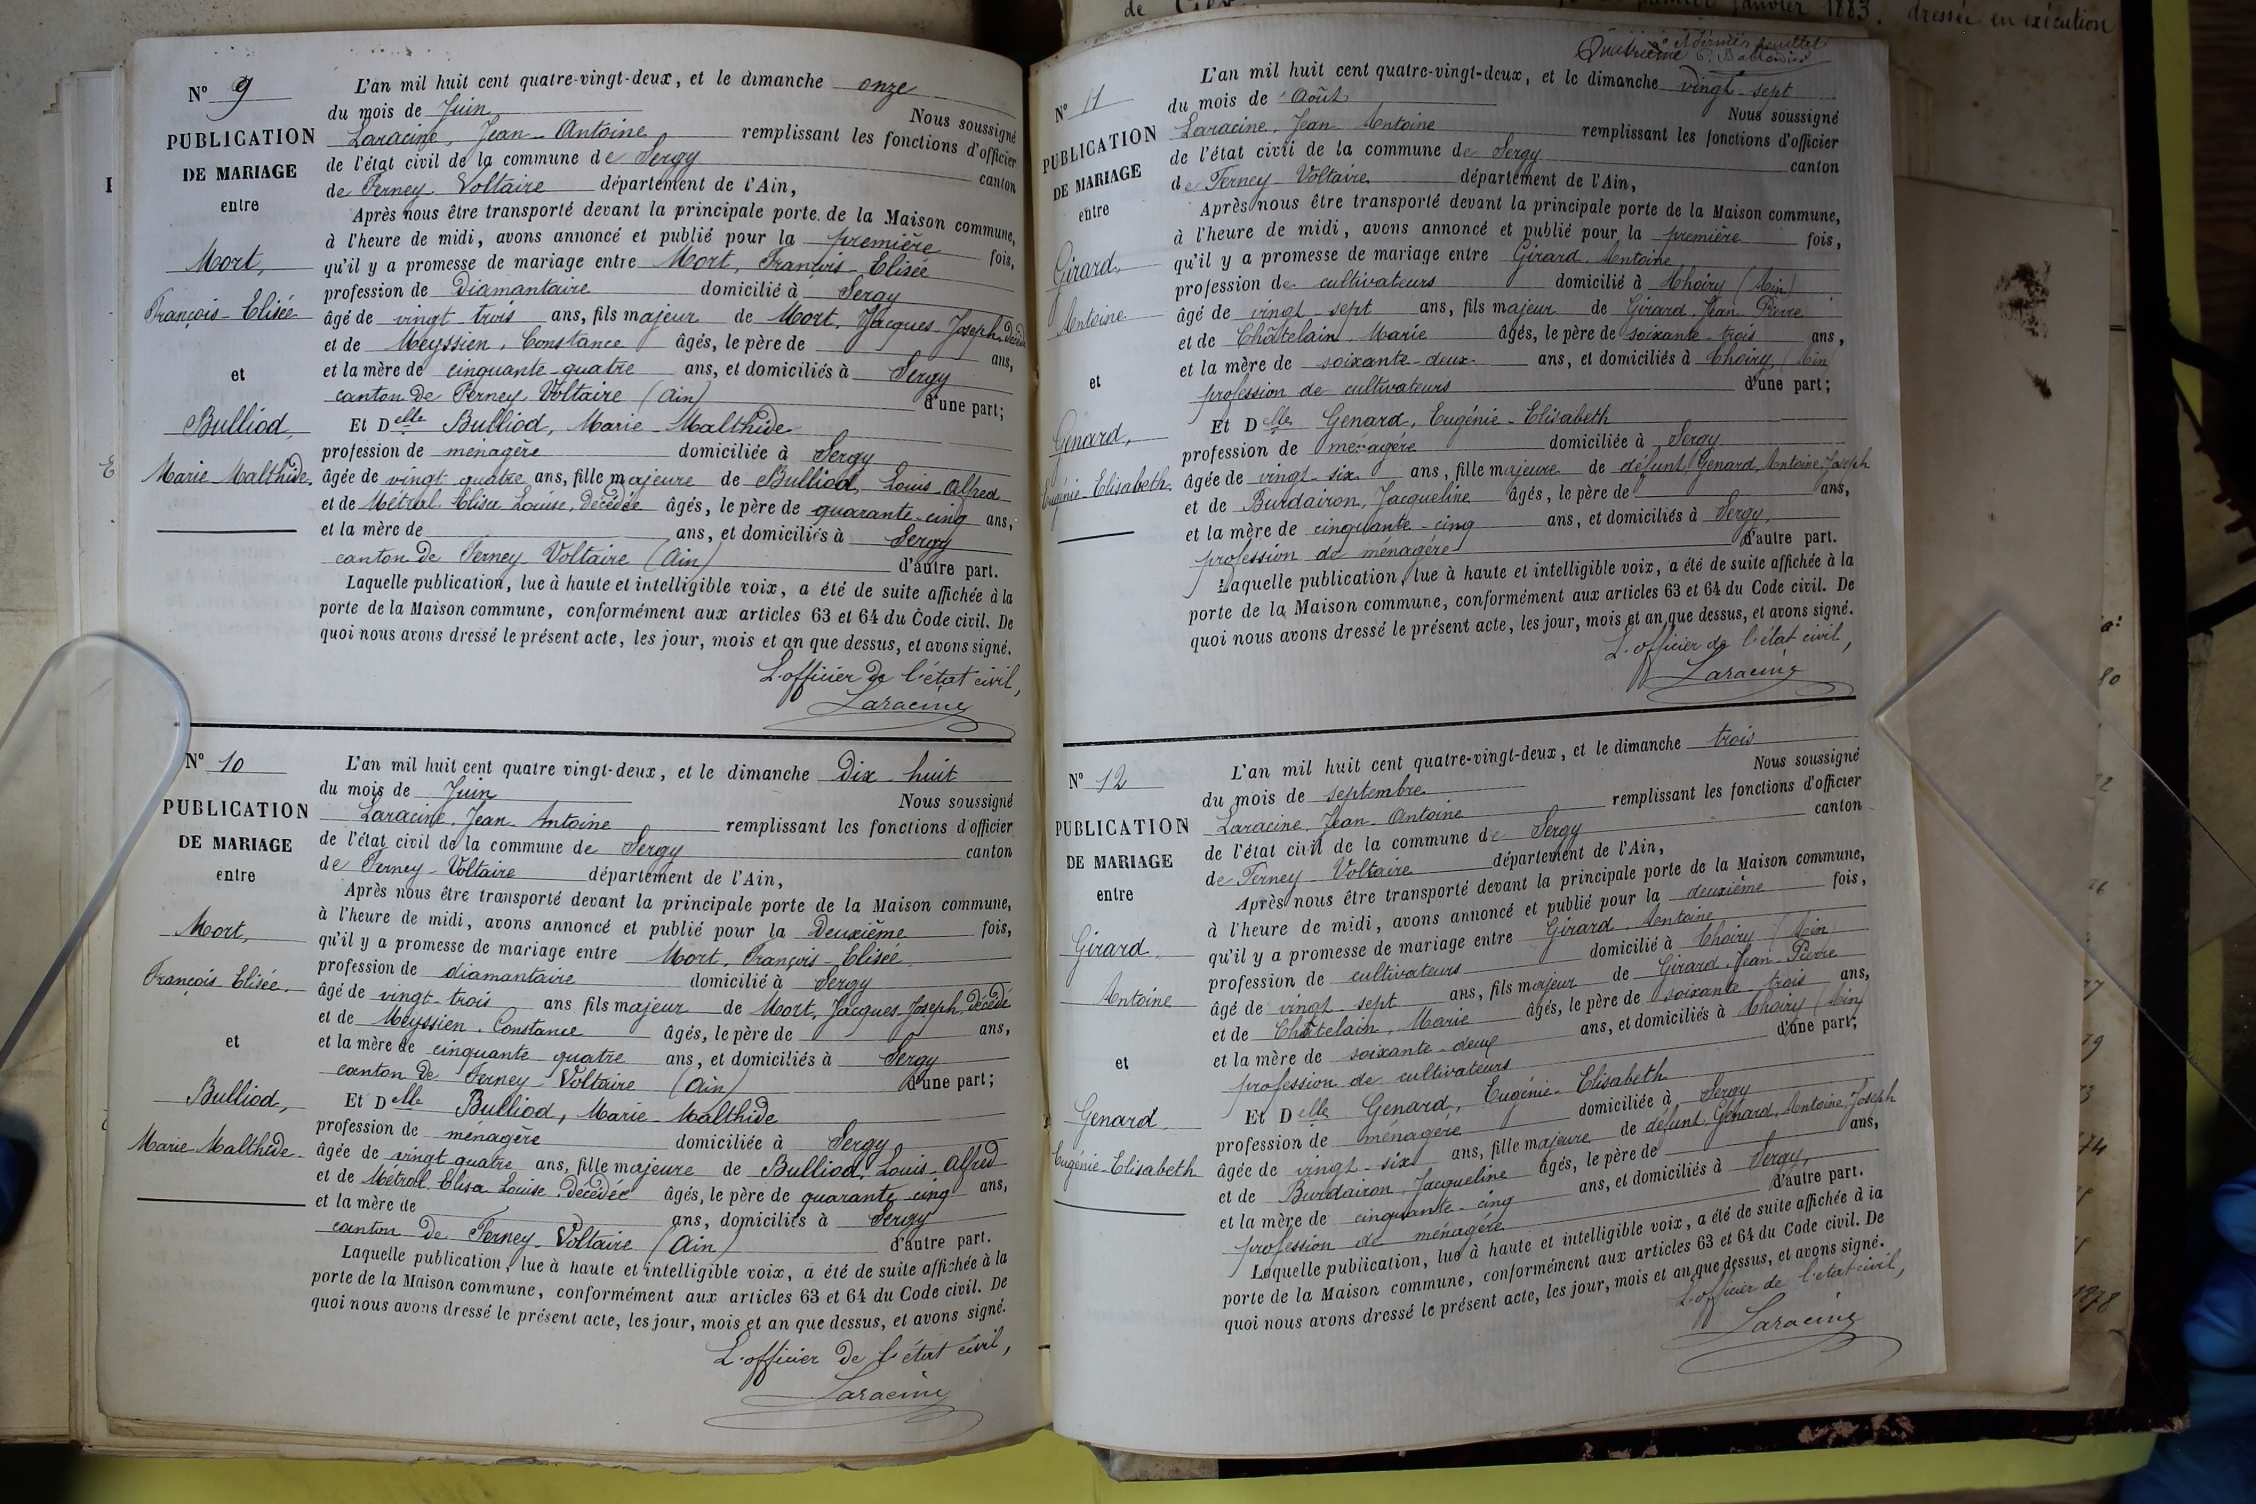 de Gex premier janvier 1883. dressée en exécution
N° 9
PUBLICATION
DE MARIAGE
entre
Mort,
François-Elisée
et
Bulliod,
Marie Malthide.
L'an mil huit cent quatre-vingt-deux, et le dimanche onze
du mois de Juin Nous soussigné
Laracine, Jean-Antoine remplissant les fonctions d'officier
de l'état civil de la commune de Sergy canton
de Ferney-Voltaire département de l'Ain,
Après nous être transporté devant la principale porte de la Maison commune,
à l'heure de midi, avons annoncé et publié pour la première fois,
qu'il y a promesse de mariage entre Mort, François-Elisée
profession de Diamantaire domicilié à Sergy
âgé de vingt-trois ans, fils majeur de Mort, Jacques-Joseph, décédé
et de Meyssien, Constance âgés, le père de ans,
et la mère de cinquante-quatre ans, et domiciliés à Sergy
canton de Ferney Voltaire (Ain) d'une part;
Et Delle Bulliod, Marie-Malthide
profession de ménagère domiciliée à Sergy
âgée de vingt quatre ans, fille majeure de Bulliod, Louis-Alfred
et de Métral Elisa Louise, Décédée âgés, le père de quarante-cinq ans,
et la mère de ans, et domiciliés à Sergy
canton de Ferney-Voltaire (Ain) d'autre part.
Laquelle publication, lue à haute et intelligible voix, a été de suite affichée à la
porte de la Maison commune, conformément aux articles 63 et 64 du Code civil. De
quoi nous avons dressé le présent acte, les jour, mois et an que dessus, et avons signé.
L'officier de l'état civil,
Laracine
N° 10
PUBLICATION
DE MARIAGE
entre
Mort,
François Elisée.
et
Bulliod,
Marie-Malthide.
L'an mil huit cent quatre vingt-deux, et le dimanche Dix-huit
du mois de Juin Nous soussigné
Laracine, Jean-Antoine remplissant les fonctions d'officier
de l'état civil de la commune de Sergy canton
de Ferney-Voltaire département de l'Ain,
Après nous être transporté devant la principale porte de la Maison commune,
à l'heure de midi, avons annoncé et publié pour la Deuxième fois,
qu'il y a promesse de mariage entre Mort, François-Elisée
profession de diamantaire domicilié à Sergy
âgé de vingt-trois ans fils majeur de Mort, Jacques-Joseph, Décédé
et de Meyssien, Constance âgés, le père de ans,
et la mère de cinquante quatre ans, et domiciliés à Sergy
canton de Ferney-Voltaire (Ain) d'une part;
Et Delle Bulliod, Marie-Malthide
profession de ménagère domiciliée à Sergy
âgée de vingt quatre ans, fille majeure de Bulliod, Louis-Alfred
et de Métral Elisa Louise, Décédée âgés, le père de quarante cinq ans,
et la mère de ans, domiciliés à Sergy
canton de Ferney-Voltaire (Ain) d'autre part.
Laquelle publication, lue à haute et intelligible voix, a été de suite affichée à la
porte de la Maison commune, conformément aux articles 63 et 64 du Code civil. De
quoi nous avons dressé le présent acte, les jour, mois et an que dessus, et avons signé.
L'officier de l'état civil,
Laracine
Quatrième feuillet
N° 11
PUBLICATION
DE MARIAGE
entre
Girard,
Antoine
et
Genard,
Eugénie-Elisabeth.
L'an mil huit cent quatre-vingt-deux, et le dimanche vingt-sept
du mois de Août Nous soussigné
Laracine, Jean-Antoine remplissant les fonctions d'officier
de l'état civil de la commune de Sergy canton
de Ferney-Voltaire département de l'Ain,
Après nous être transporté devant la principale porte de la Maison commune,
à l'heure de midi, avons annoncé et publié pour la première fois,
qu'il y a promesse de mariage entre Girard, Antoine
profession de cultivateurs domicilié à Thoiry (Ain)
âgé de vingt-sept ans, fils majeur de Girard, Jean-Pierre
et de Châtelain, Marie âgés, le père de soixante-trois ans,
et la mère de soixante-deux ans, et domiciliés à Thoiry (Ain)
profession de cultivateurs d'une part;
Et Delle Genard, Eugénie-Elisabeth
profession de ménagère domiciliée à Sergy
âgée de vingt-six ans, fille majeure de défunt Genard, Antoine Joseph
et de Burdairon, Jacqueline âgés, le père de ans,
et la mère de cinquante-cinq ans, et domiciliés à Sergy,
profession de ménagère d'autre part.
Laquelle publication, lue à haute et intelligible voix, a été de suite affichée à la
porte de la Maison commune, conformément aux articles 63 et 64 du Code civil. De
quoi nous avons dressé le présent acte, les jour, mois et an que dessus, et avons signé.
L'officier de l'état civil,
Laracine
N° 12
PUBLICATION
DE MARIAGE
entre
Girard,
Antoine
et
Genard
Eugénie-Elisabeth
L'an mil huit cent quatre-vingt-deux, et le dimanche trois
du mois de septembre Nous soussigné
Laracine, Jean-Antoine remplissant les fonctions d'officier
de l'état civil de la commune de Sergy canton
de Ferney-Voltaire département de l'Ain,
Après nous être transporté devant la principale porte de la Maison commune,
à l'heure de midi, avons annoncé et publié pour la deuxième fois,
qu'il y a promesse de mariage entre Girard, Antoine
profession de cultivateurs domicilié à Thoiry (Ain)
âgé de vingt-sept ans, fils majeur de Girard, Jean-Pierre
et de Châtelain, Marie âgés, le père de soixante-trois ans,
et la mère de soixante-deux ans, et domiciliés à Thoiry (Ain)
profession de cultivateurs d'une part;
Et Delle Genard, Eugénie-Elisabeth
profession de ménagère domiciliée à Sergy
âgée de vingt-six ans, fille majeure de défunt Genard, Antoine Joseph
et de Burdairon, Jacqueline âgés, le père de ans,
et la mère de cinquante-cinq ans, et domiciliés à Sergy,
profession de ménagère d'autre part.
Laquelle publication, lue à haute et intelligible voix, a été de suite affichée à la
porte de la Maison commune, conformément aux articles 63 et 64 du Code civil. De
quoi nous avons dressé le présent acte, les jour, mois et an que dessus, et avons signé.
L'officier de l'état civil,
Laracine
1878